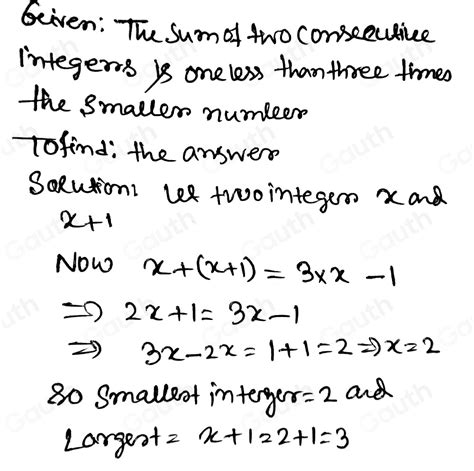 Geiven: The Sum of two consecutive
integers is one less than three times
the smaller number
To find: the answer
Solution: let two integers x and
x+1
Now x+(x+1) = 3×x -1
⇒ 2x+1 = 3x-1
⇒ 3x-2x = 1+1=2 ⇒ x=2
So Smallest integer = 2 and
Largest = x+1=2+1=3